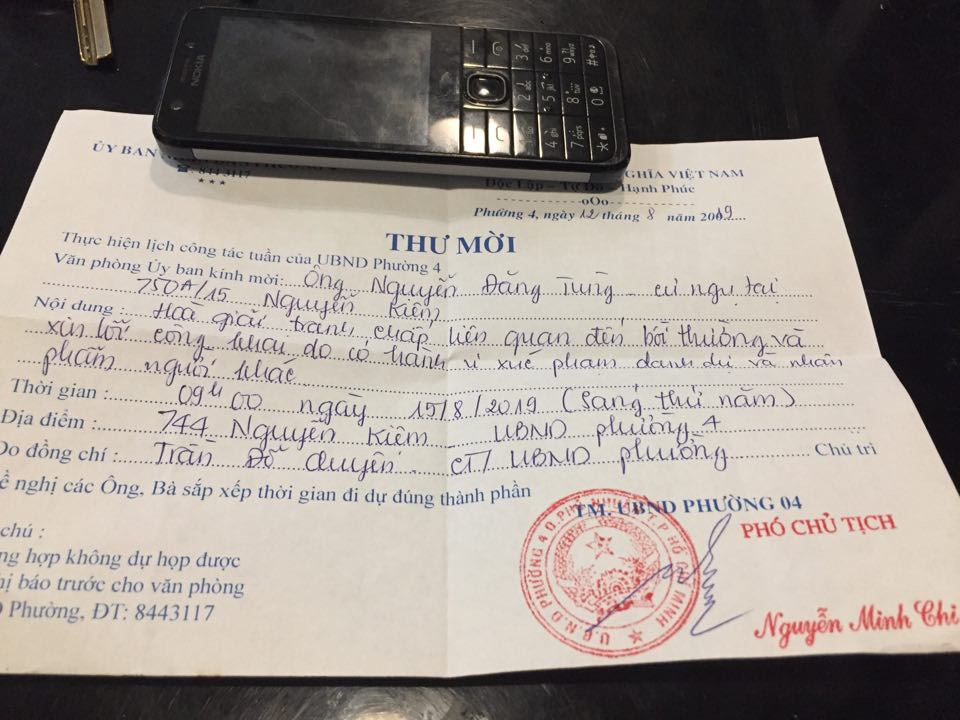 NOKIA
ỦY BAN
☎: 8443117
★★★
NGHĨA VIỆT NAM
Độc Lập - Tự Do - Hạnh Phúc
oOo
Phường 4, ngày 12 tháng 8 năm 20019
THƯ MỜI
Thực hiện lịch công tác tuần của UBND Phường 4
Văn phòng Ủy ban kính mời: Ông Nguyễn Đăng Tùng - cư ngụ tại
750A/15 Nguyễn Kiệm
Nội dung: Hoà giải tranh chấp liên quan đến bồi thường và
xin lỗi công khai do có hành vi xúc phạm danh dự và nhân
phẩm người khác
Thời gian : 09H00 ngày 15/8/2019 (Sáng thứ năm)
Địa điểm : 744 Nguyễn Kiệm - UBND phường 4
Do đồng chí : Trần Đỗ Quyên - CT UBND phường Chủ trì
ề nghị các Ông, Bà sắp xếp thời gian đi dự đúng thành phần
chú :
ng hợp không dự họp được
hị báo trước cho văn phòng
D Phường, ĐT: 8443117
TM. UBND PHƯỜNG 04
PHÓ CHỦ TỊCH
U.B.N.D PHƯỜNG 4 Q.PHÚ NHUẬN T.P HỒ CHÍ MINH
Nguyễn Minh Chi